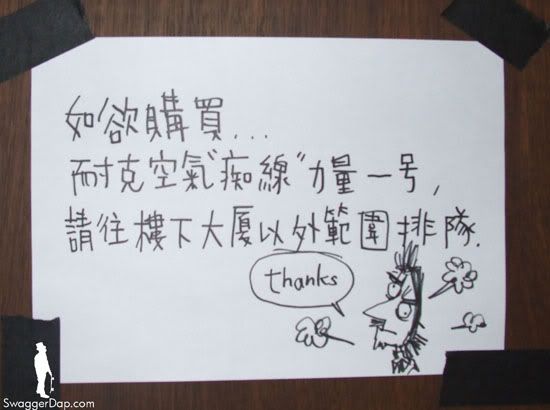 如欲購買...
耐克空氣"痴線"力量一号，
請往樓下大厦以外範圍排隊.
thanks
SwaggerDap.com